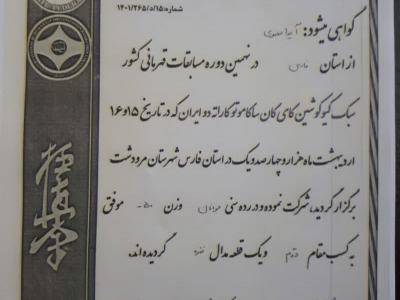 شماره: ۱۴۰۱/۲۶۵/د/۱۵
گواهی میشود:
از استان فارس در نهمین دوره مسابقات قهرمانی کشور
سبک کیوکوشین کای کان ساکاموتو کاراته دو ایران که در تاریخ ۱۵ و ۱۶
اردیبهشت ماه هزار و چهارصد و یک در استان فارس شهرستان مرودشت
برگزار گردید، شرکت نموده و در رده سنی وزن ۵۰- موفق
به کسب مقام دوم و یک قطعه مدال نقره گردیده اند.